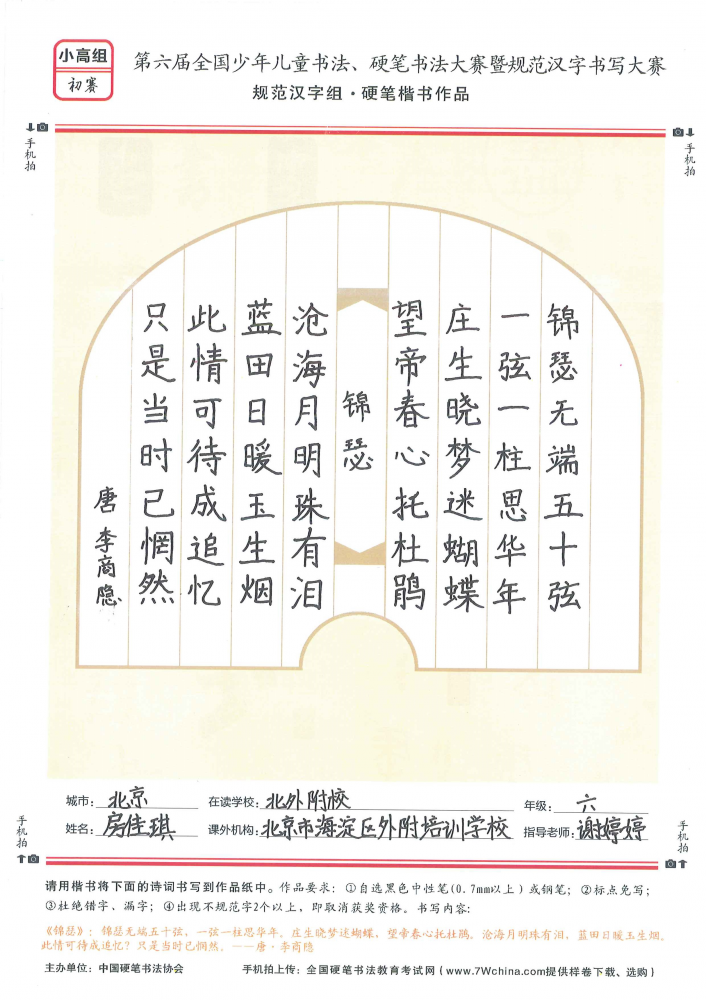 小高组
初赛
第六届全国少年儿童书法、硬笔书法大赛暨规范汉字书写大赛
规范汉字组·硬笔楷书作品
手机拍
手机拍
锦瑟无端五十弦
一弦一柱思华年
庄生晓梦迷蝴蝶
望帝春心托杜鹃
锦瑟
沧海月明珠有泪
蓝田日暖玉生烟
此情可待成追忆
只是当时已惘然
唐 李商隐
城市：北京 在读学校：北外附校 年级：六
姓名：房佳琪 课外机构：北京市海淀区外附培训学校 指导老师：谢婷婷
手机拍
手机拍
请用楷书将下面的诗词书写到作品纸中。作品要求：①自选黑色中性笔(0.7mm以上)或钢笔；②标点免写；
③杜绝错字、漏字；④出现不规范字2个以上，即取消获奖资格。书写内容：
《锦瑟》：锦瑟无端五十弦，一弦一柱思华年。庄生晓梦迷蝴蝶，望帝春心托杜鹃。沧海月明珠有泪，蓝田日暖玉生烟。
此情可待成追忆？只是当时已惘然。——唐·李商隐
主办单位：中国硬笔书法协会 手机拍上传：全国硬笔书法教育考试网（www.7Wchina.com提供样卷下载、选购）